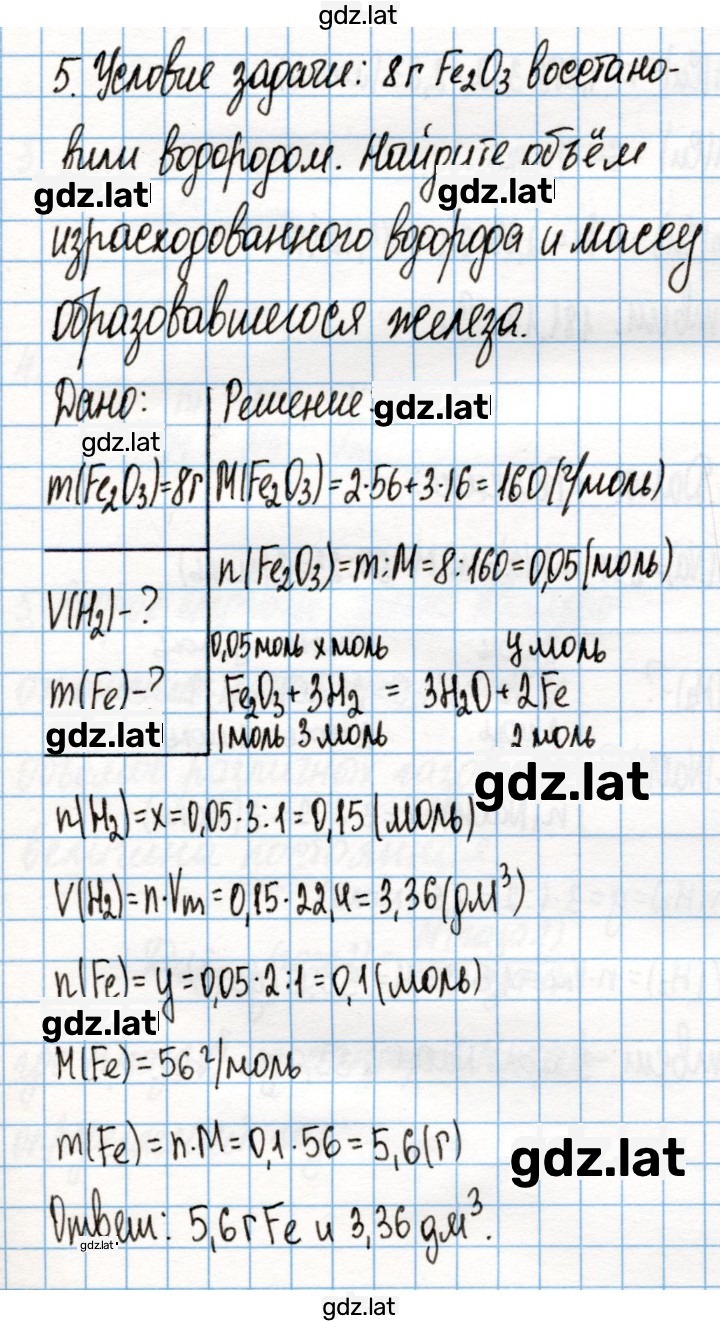 gdz.lat
5. Условие задачи: 8г Fe₂O₃ восстано-
вили водородом. Найдите объём
gdz.lat gdz.lat
израсходованного водорода и массу
образовавшегося железа.
Дано: Решение gdz.lat
gdz.lat
m(Fe₂O₃)=8г M(Fe₂O₃)=2·56+3·16=160(г/моль)
n(Fe₂O₃)=m:M=8:160=0,05(моль)
V(H₂)-?
0,05моль x моль y моль
m(Fe)-? Fe₂O₃+3H₂ = 3H₂O+2Fe
gdz.lat 1моль 3 моль 2 моль
gdz.lat
n(H₂)=x=0,05·3:1=0,15(моль)
V(H₂)=n·Vm=0,15·22,4=3,36(дм³)
n(Fe)=y=0,05·2:1=0,1(моль)
gdz.lat
M(Fe)=56г/моль
m(Fe)=n·M=0,1·56=5,6(г)
gdz.lat
Ответ: 5,6гFe и 3,36 дм³.
gdz.lat
gdz.lat